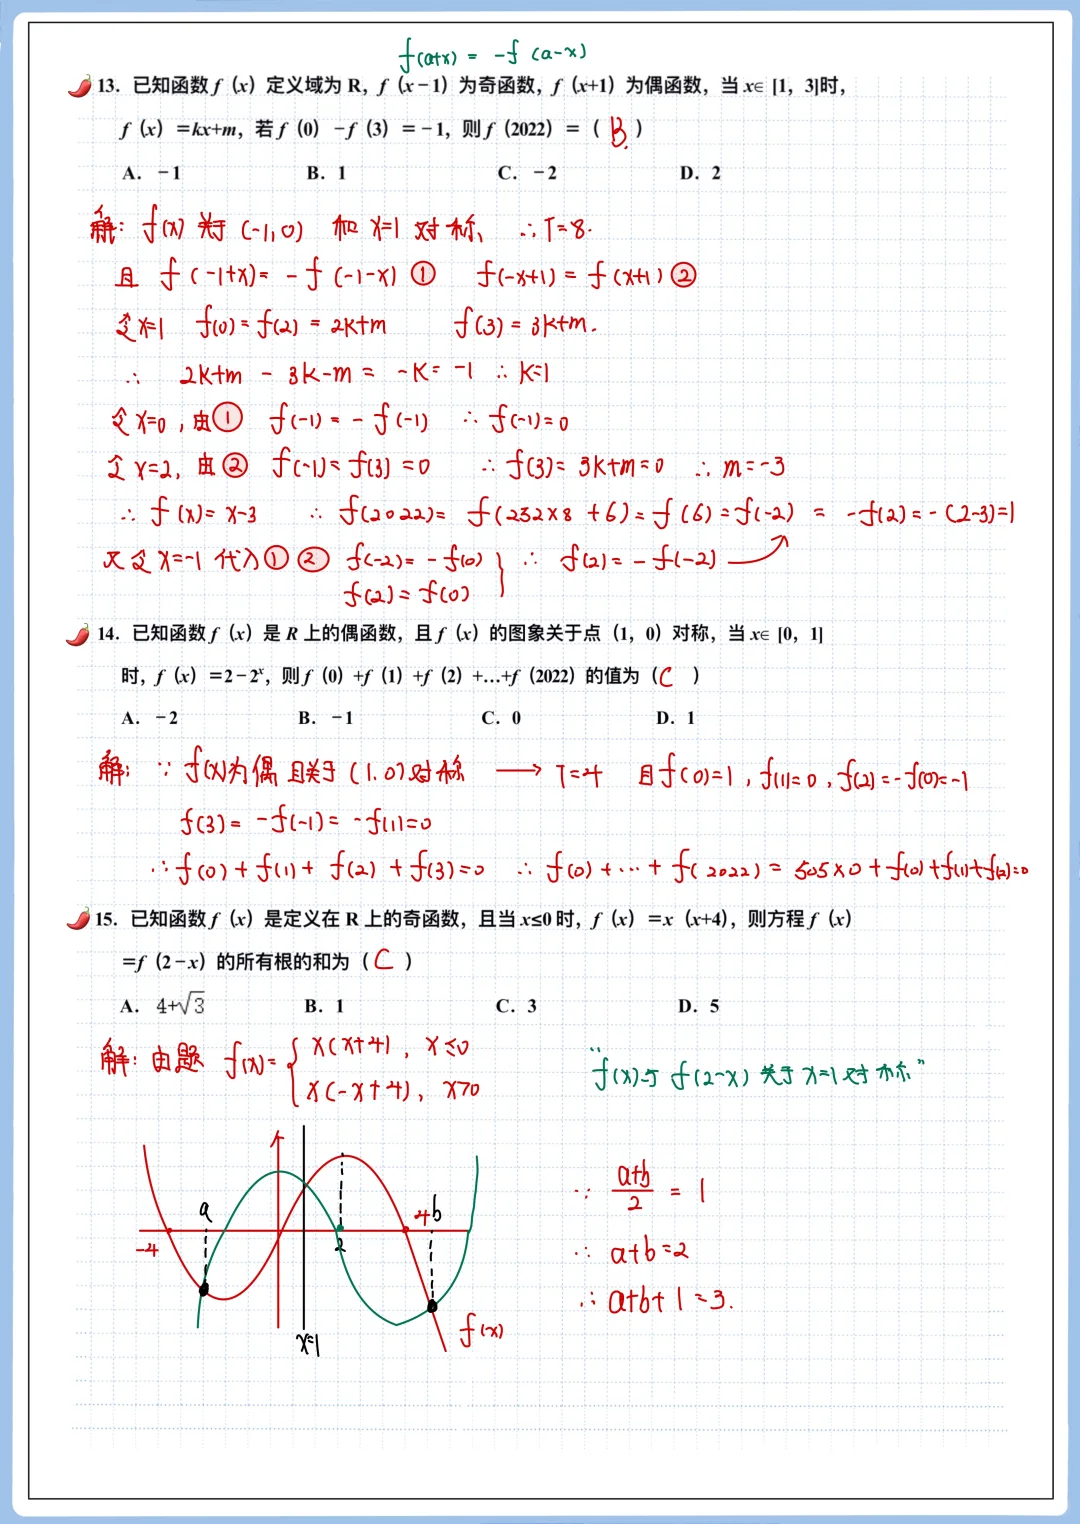 f(a+x) = -f(a-x)
13．已知函数 f（x）定义域为 R，f（x－1）为奇函数，f（x+1）为偶函数，当 x∈ [1，3]时，
f（x）＝kx+m，若 f（0）－f（3）＝－1，则 f（2022）＝（ B. ）
A．－1 B．1 C．－2 D．2
解: f(x) 关于 (-1,0) 和 x=1 对称、 ∴T=8.
且 f(-1+x)= -f(-1-x) ① f(-x+1) = f(x+1) ②
令x=1 f(0)=f(2) = 2k+m f(3) = 3k+m.
∴ 2k+m - 3k-m = -k= -1 ∴ k=1
令 x=0 , 由① f(-1) = -f(-1) ∴ f(-1)=0
令 x=2, 由② f(-1)= f(3) =0 ∴ f(3)= 3k+m=0 ∴ m=-3
∴ f(x)= x-3 ∴ f(2022)= f(252×8+6)=f(6)=f(-2) = -f(2)=-(2-3)=1
又令 x=-1 代入① ② f(-2)= -f(0) ∴ f(2)= -f(-2)
f(2)= f(0)
14．已知函数 f（x）是 R 上的偶函数，且 f（x）的图象关于点（1，0）对称，当 x∈ [0，1]
时，f（x）＝2－2ˣ，则 f（0）+f（1）+f（2）+…+f（2022）的值为（ C ）
A．－2 B．－1 C．0 D．1
解: ∵ f(x)为偶 且关于(1.0)对称 → T=4 且f(0)=1 , f(1)=0 , f(2)=-f(0)=-1
f(3)= -f(-1)= -f(1)=0
∴ f(0)+f(1)+ f(2) +f(3)=0 ∴ f(0)+…+ f(2022)= 505×0+f(0)+f(1)+f(2)=0
15．已知函数 f（x）是定义在 R 上的奇函数，且当 x≤0 时，f（x）＝x（x+4），则方程 f（x）
＝f（2－x）的所有根的和为（ C ）
A．4+√3 B．1 C．3 D．5
解: 由题 f(x)= { x(x+4) , x≤0
x(-x+4) , x>0
“f(x)与 f(2-x) 关于 x=1对称”
a 4 b
-4 2
x=1
f(x)
∵ (a+b)/2 = 1
∴ a+b=2
∴ a+b+1=3.